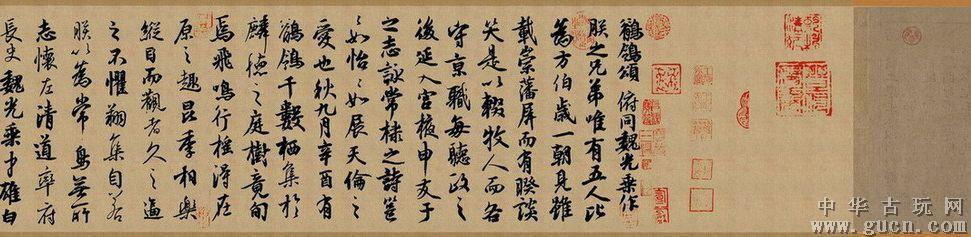 鶺鴒頌 俯同魏光乘作
朕之兄弟唯有五人比
為方伯歲一朝見雖
載崇藩屏而有睽談
笑是以輟牧人而各
守京職每聽政之
後延入宮掖申友于
之志詠常棣之詩邕
々如怡々如展天倫之
愛也秋九月辛酉有
鶺鴒千數栖集於
麟德之庭樹竟旬
焉飛鳴行搖得在
原之趣昆季相樂
縱目而觀者久之逼
之不懼翔集自若
朕以為常鳥無所
志懷左清道率府
長史魏光乘才雄白
中华古玩网
www.gucn.com